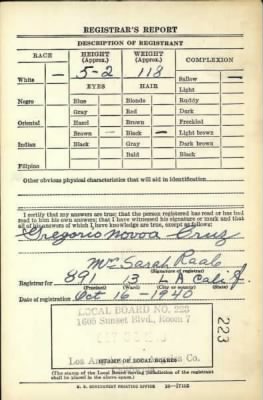 REGISTRAR'S REPORT
DESCRIPTION OF REGISTRANT
RACE HEIGHT (Approx.) WEIGHT (Approx.) COMPLEXION
5-2 118
White — Sallow —
EYES HAIR Light
Negro Blue Blonde Ruddy
Gray Red Dark
Oriental Hazel Brown Freckled
Brown — Black — Light brown
Indian Black Gray Dark brown
Bald Black
Filipino
Other obvious physical characteristics that will aid in identification
I certify that my answers are true; that the person registered has read or has had
read to him his own answers; that I have witnessed his signature or mark and that
all of his answers of which I have knowledge are true, except as follows:
Gregorio Novoa Cruz
Mrs Sarah Raab
(Signature of registrar)
Registrar for 891 13 L A Calif
(Precinct) (Ward) (City or county) (State)
Date of registration Oct 16 - 1940
LOCAL BOARD NO. 223
1605 Sunset Blvd., Room 7
223
Los Angeles Co.
STAMP OF LOCAL BOARD
(The stamp of the Local Board having jurisdiction of the registrant
shall be placed in the above space.)
U. S. GOVERNMENT PRINTING OFFICE 16—17105